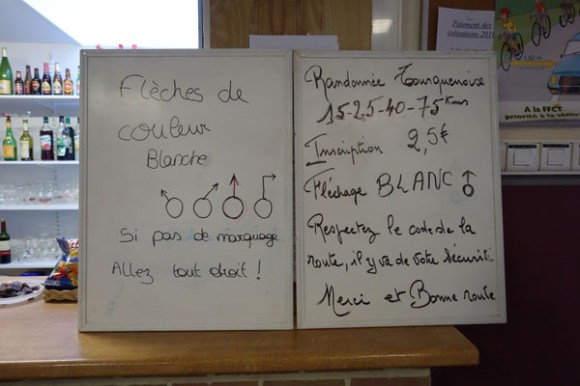 Flèches de
couleur
Blanche
Si pas de marquage
Allez tout droit !
Randonnée Tourquenoise
15-25-40-75 Kms
Inscription 2,5€
Fléchage BLANC
Respectez le code de la
route, il y va de votre sécurité
Merci et Bonne route
Paiement des
cotisations 201
A la FFCT
priorité à la